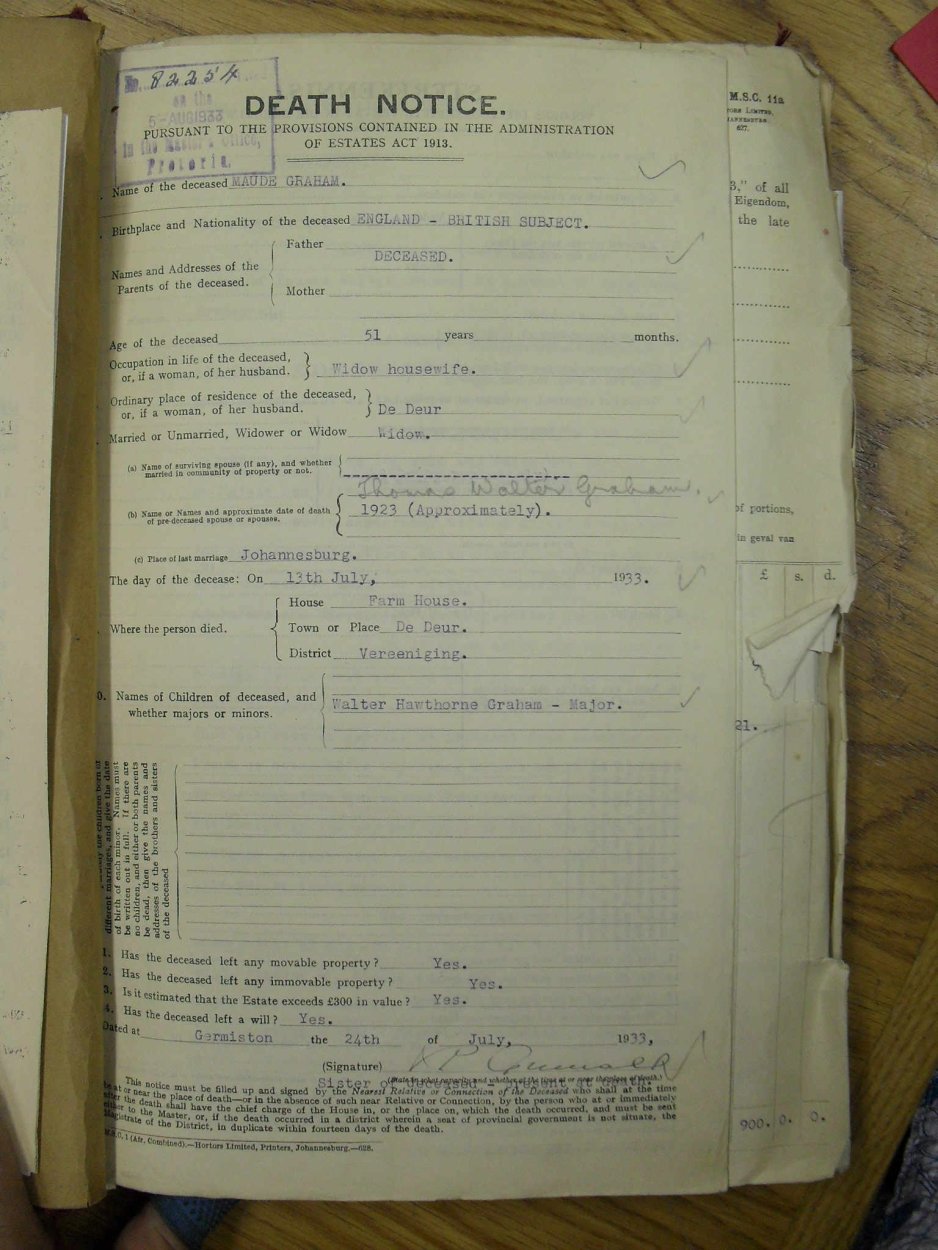 No. 82254
on the
5-AUG 1933
in the Master's Office,
Pretoria.
DEATH NOTICE.
PURSUANT TO THE PROVISIONS CONTAINED IN THE ADMINISTRATION
OF ESTATES ACT 1913.
Name of the deceased MAUDE GRAHAM.
Birthplace and Nationality of the deceased ENGLAND - BRITISH SUBJECT.
Names and Addresses of the
Parents of the deceased.
Father
DECEASED.
Mother
Age of the deceased 51 years months.
Occupation in life of the deceased,
or, if a woman, of her husband. Widow housewife.
Ordinary place of residence of the deceased,
or, if a woman, of her husband. De Deur
Married or Unmarried, Widower or Widow Widow.
(a) Name of surviving spouse (if any), and whether
married in community of property or not.
Thomas Walter Graham.
(b) Name or Names and approximate date of death
of pre-deceased spouse or spouses.
1923 (Approximately).
(c) Place of last marriage Johannesburg.
The day of the decease: On 13th July, 1933.
Where the person died.
House Farm House.
Town or Place De Deur.
District Vereeniging.
0. Names of Children of deceased, and
whether majors or minors.
Walter Hawthorne Graham - Major.
the children born of
different marriages, and give the date
of birth of each minor. Names must
be written out in full. If there are
no children, and either or both parents
be dead, then give the names and
addresses of the brothers and sisters
of the deceased
1. Has the deceased left any movable property? Yes.
2. Has the deceased left any immovable property? Yes.
3. Is it estimated that the Estate exceeds £300 in value? Yes.
4. Has the deceased left a will? Yes.
Dated at Germiston the 24th of July, 1933,
(Signature)
(State in what capacity and whether at the time at or near the place of death.)
Sister of deceased - present at death.
This notice must be filled up and signed by the Nearest Relative or Connection of the Deceased who shall at the time
be at or near the place of death—or in the absence of such near Relative or Connection, by the person who at or immediately
after the death shall have the chief charge of the House in, or the place on, which the death occurred, and must be sent
either to the Master, or, if the death occurred in a district wherein a seat of provincial government is not situate, the
Magistrate of the District, in duplicate within fourteen days of the death.
M.S.C. 1 (Afr. Combined).—Hortors Limited, Printers, Johannesburg.—628.
M.S.C. 11a
TORS LIMITED,
627.
3," of all
Eigendom,
the late
of portions,
in geval van
£ s. d.
21.
900. 0. 0.